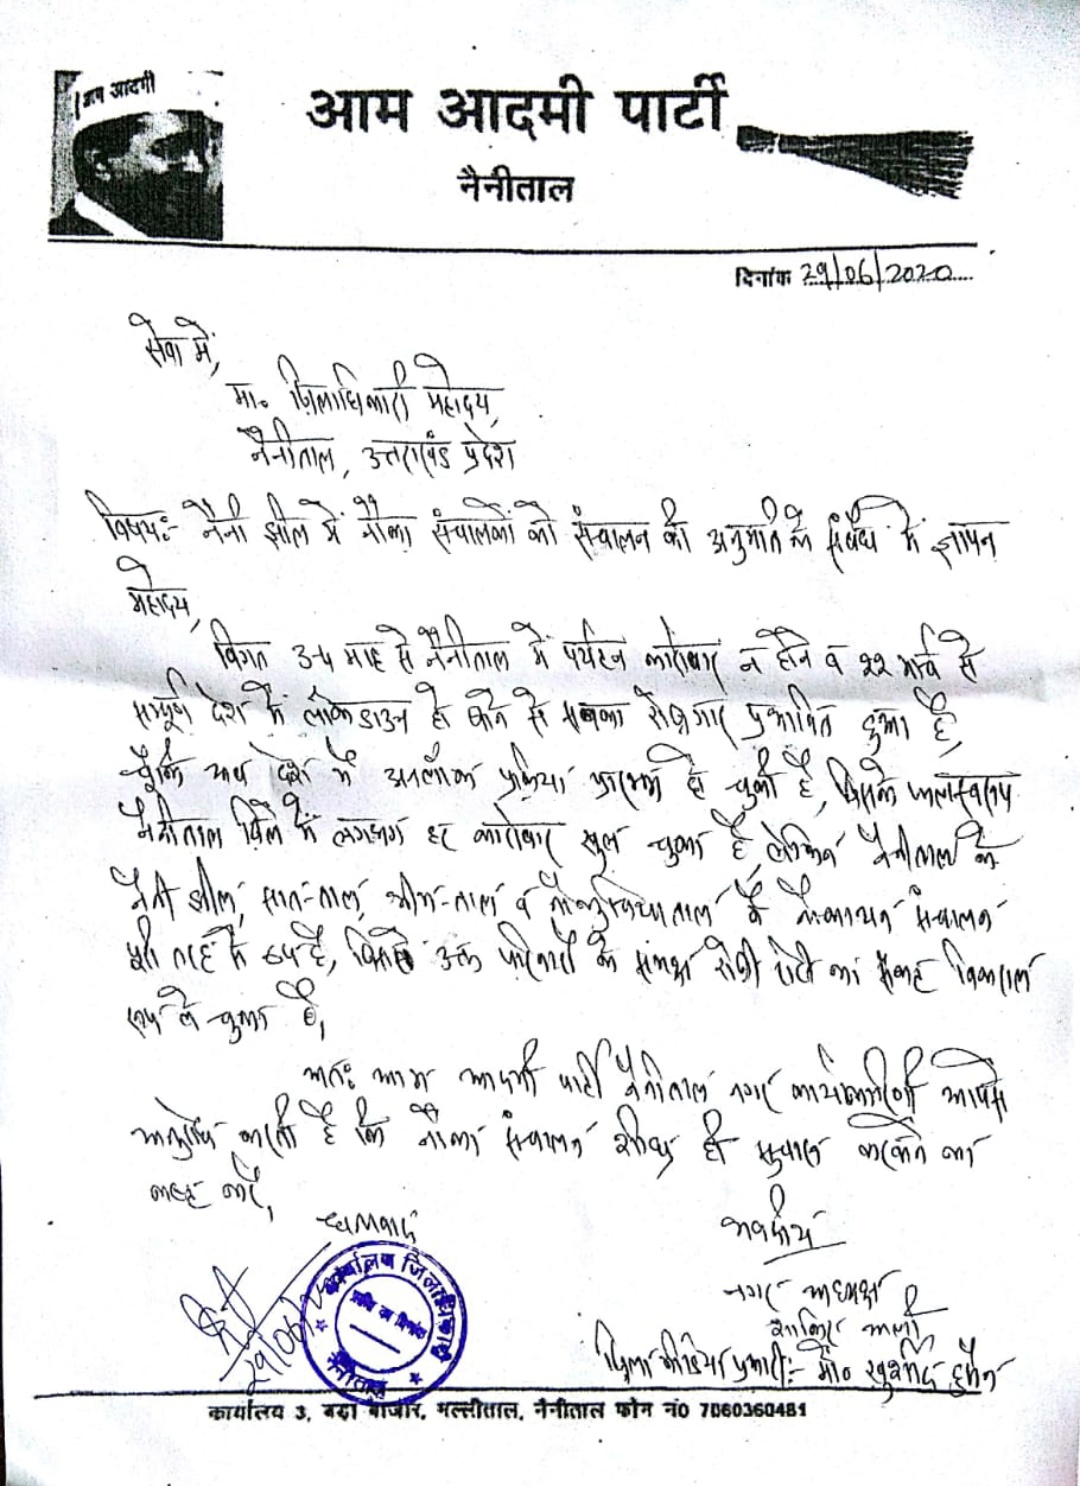 आम आदमी
आम आदमी पार्टी
नैनीताल
दिनांक 29/06/2020
सेवा में,
मा० जिलाधिकारी महोदय,
नैनीताल, उत्तराखंड प्रदेश
विषय:- नैनी झील में नौका संचालकों को संचालन की अनुमति के संबंध में ज्ञापन
महोदय,
विगत 3-4 माह से नैनीताल में पर्यटन कारोबार न होने व 22 मार्च से
सम्पूर्ण देश में लॉकडाउन हो जाने से सबका रोजगार प्रभावित हुआ है,
चूँकि अब देश में अनलॉक प्रक्रिया प्रारम्भ हो चुकी है, जिसके फलस्वरूप
नैनीताल जिले में लगभग हर कारोबार खुल चुका है, लेकिन नैनीताल के
नैनी झील, सात-ताल, भीम-ताल व नौकुचियाताल में नौकायन संचालन
इसी तरह से ठप है, जिससे उक्त परिवारों के समक्ष रोजी रोटी का संकट विकराल
रूप ले चुका है,
अतः आम आदमी पार्टी नैनीताल नगर कार्यकारिणी आपसे
अनुरोध करती है कि नौका संचालन शीघ्र ही सुचारु करवाने का
कष्ट करें,
धन्यवाद
भवदीय
नगर अध्यक्ष
शाकिर अली
जिला मीडिया प्रभारी:- मो० खुर्शीद हुसैन
29/06/
कार्यालय जिलाधिकारी
प्राप्ति का दिनांक
नैनीताल
कार्यालय 3, बड़ा बाजार, मल्लीताल, नैनीताल फोन नं0 7060360481